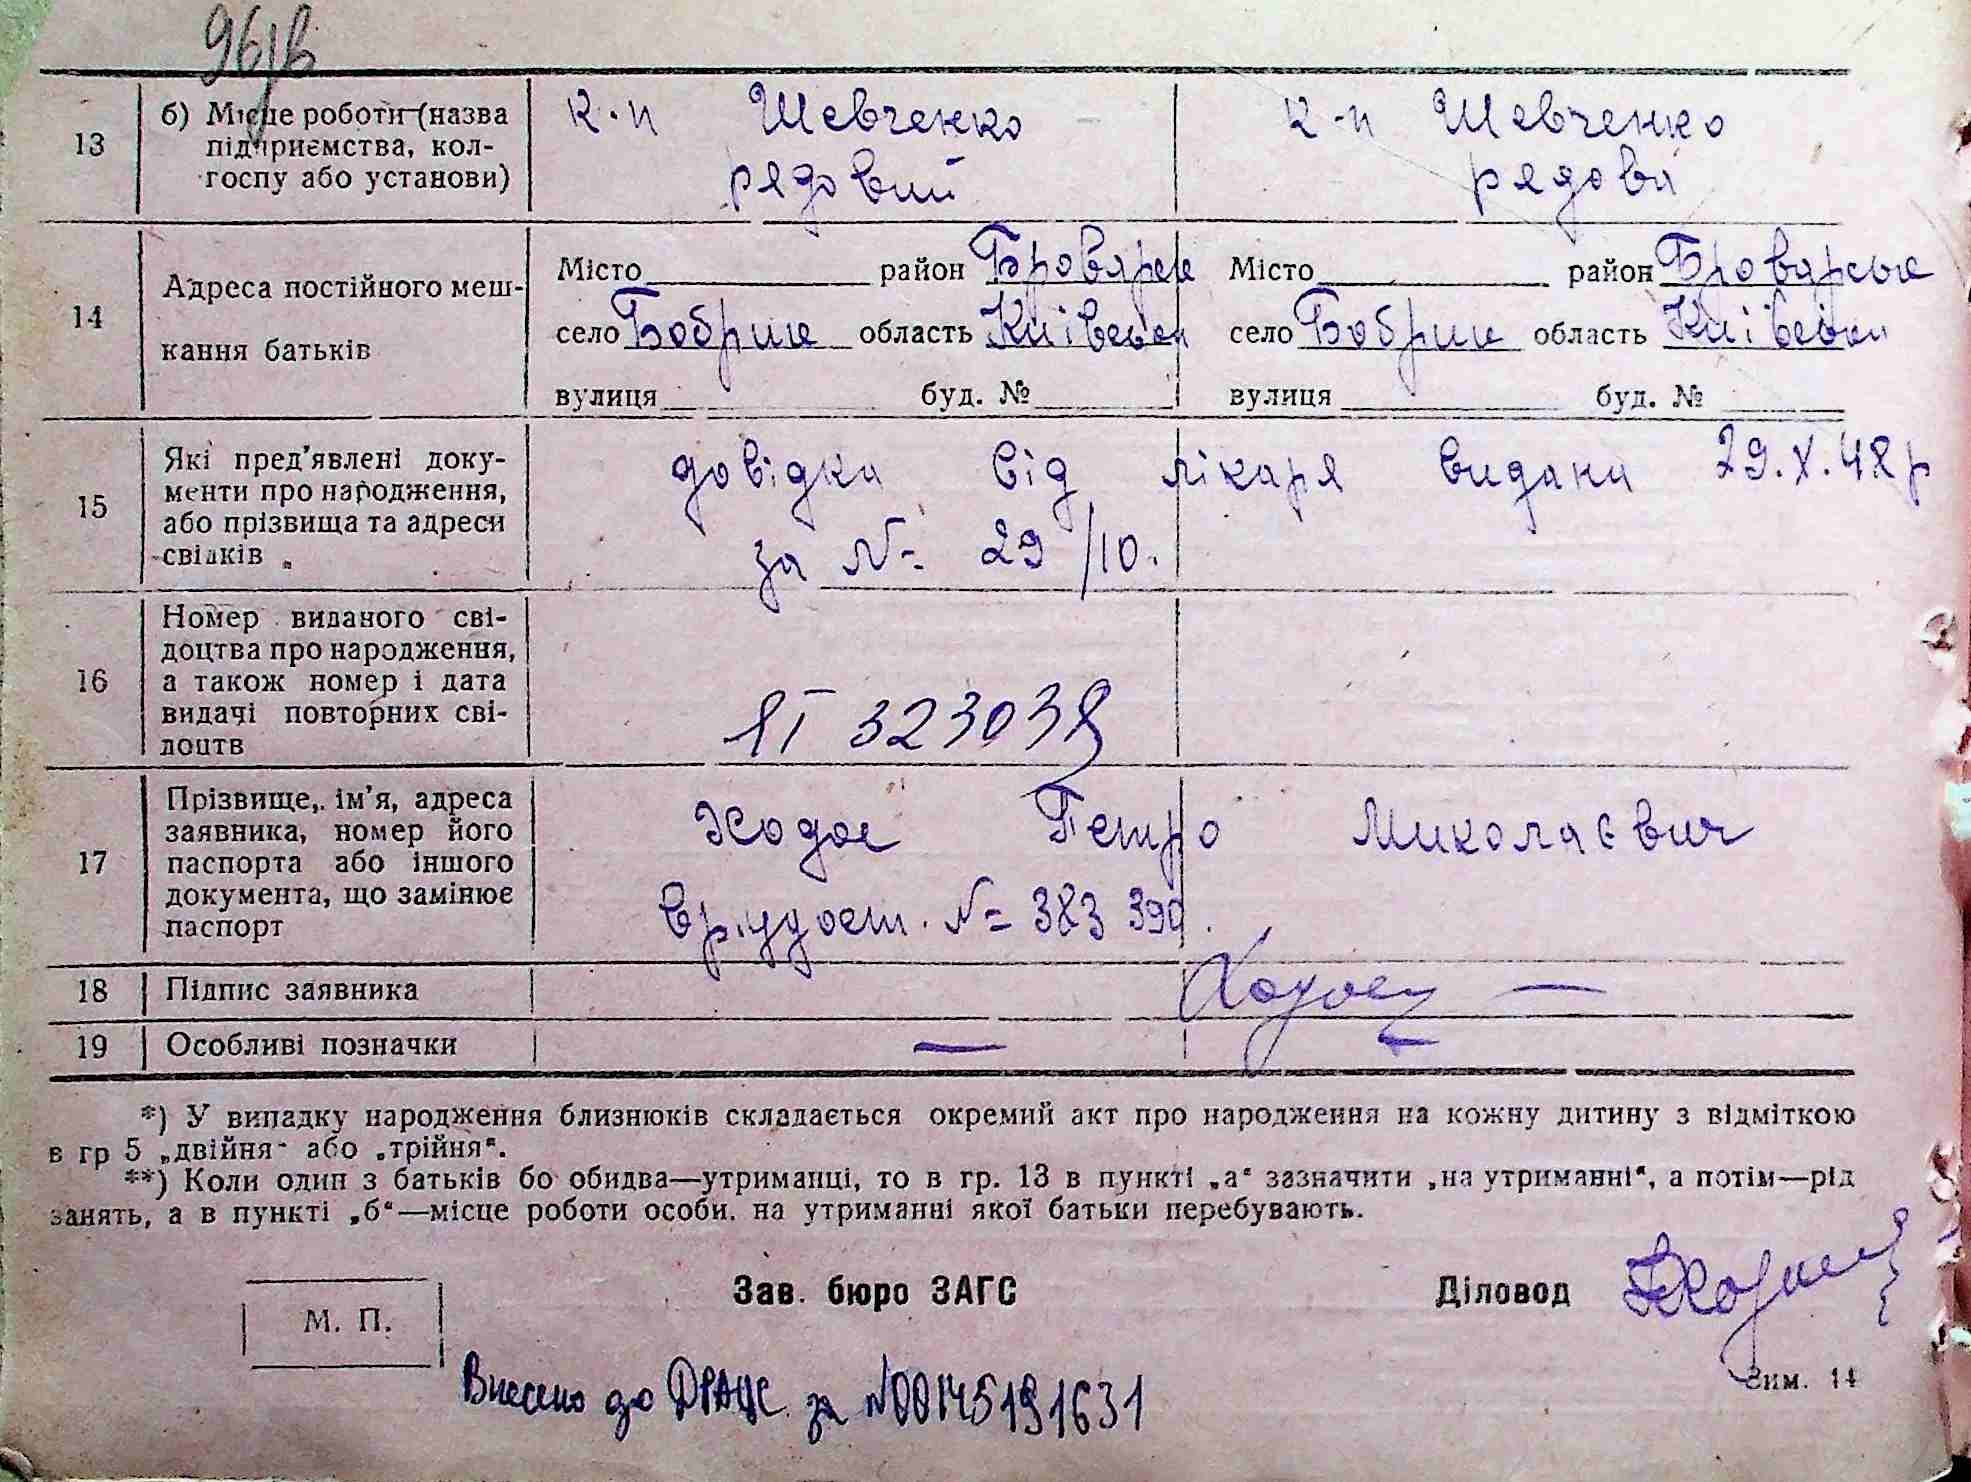 96
13 б) Місце роботи (назва підприємства, колгоспу або установи)
к-п Шевченко рядовий
к-п Шевченко рядова
14 Адреса постійного мешкання батьків
Місто район Броварськ
село Бобрик область Київськ
вулиця буд. №
Місто район Броварськ
село Бобрик область Київськ
вулиця буд. №
15 Які пред'явлені документи про народження, або прізвища та адреси свідків
довідка від лікаря видана 29.X.48 р
за № 29/10.
16 Номер виданого свідоцтва про народження, а також номер і дата видачі повторних свідоцтв
323038
17 Прізвище, ім'я, адреса заявника, номер його паспорта або іншого документа, що замінює паспорт
Ходос Петро Миколаєвич
вр.удост. № 383 390.
18 Підпис заявника
Ходос —
19 Особливі позначки — —
*) У випадку народження близнюків складається окремий акт про народження на кожну дитину з відміткою
в гр 5 „двійня" або „трійня".
**) Коли один з батьків бо обидва—утриманці, то в гр. 13 в пункті „а" зазначити „на утриманні", а потім—рід
занять, а в пункті „б"—місце роботи особи. на утриманні якої батьки перебувають.
М. П.
Зав. бюро ЗАГС
Діловод
Внесено до ДРАЦС за №00145191631
Зим. 14